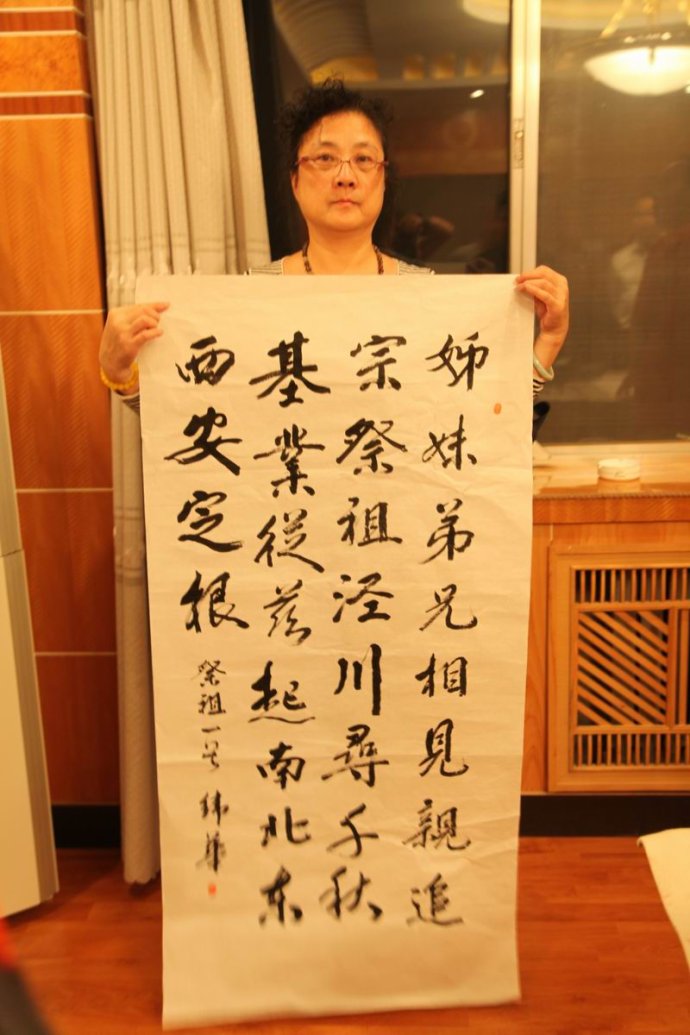 姊妹弟兄相見親追
宗祭祖泾川尋千秋
基業從兹起南北东
西安定根
祭祖一号 華